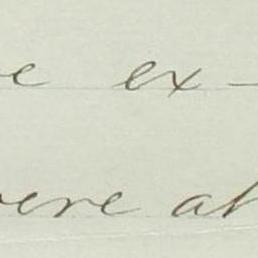 e ex-
were at